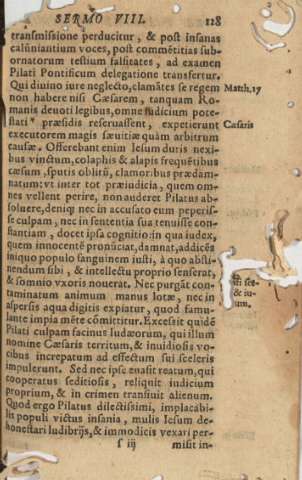 SERMO VIII. 128
transmissione perducitur, & post insanas
calũniantium voces, post commẽtitias sub-
ornatorum testium falsitates, ad examen
Pilati Pontificum delegatione transfertur.
Qui diuino iure neglecto, clamãtes se regem Matth.17
non habere nisi Cæsarem, tanquam Ro-
manis deuoti legibus, omne iudicium pote-
stati præsidis reseruassent, expetierunt Cæsaris
executorem magis sæuitiæ quàm arbitrum
causæ. Offerebant enim Iesum duris nexi-
bus vinctum, colaphis & alapis frequẽtibus
cæsum, sputis oblitũ, clamoribus prædam-
natum: vt inter tot præiudicia, quem om-
nes vellent perire, non auderet Pilatus ab-
soluere, deniq; nec in accusato eum peperis-
se culpam, nec in sententia sua tenuisse con-
stantiam, docet ipsa cognitio: in qua iudex,
quem innocentẽ pronũciat, damnat, addicẽs
iniquo populo sanguinem iusti, à quo absti-
nendum sibi, & intellectu proprio senserat,
& somnio vxoris nouerat. Nec purgãt con-
taminatum animum manus lotæ, nec in
aspersis aqua digitis expiatur, quod famu-
lante impia mẽte cõmittitur. Excessit quidẽ
Pilati culpam facinus Iudæorum, qui illum
nomine Cæsaris territum, & inuidiosis vo-
cibus increpatum ad effectum sui sceleris
impulerunt. Sed nec ipse euasit reatum, qui
cooperatus seditiosis, reliquit iudicium
proprium, & in crimen transiuit alienum.
Quod ergo Pilatus dilectissimi, implacabi-
lis populi victus insania, multis Iesum de-
honestari ludibrijs, & immodicis vexari per-
s iij misit in-